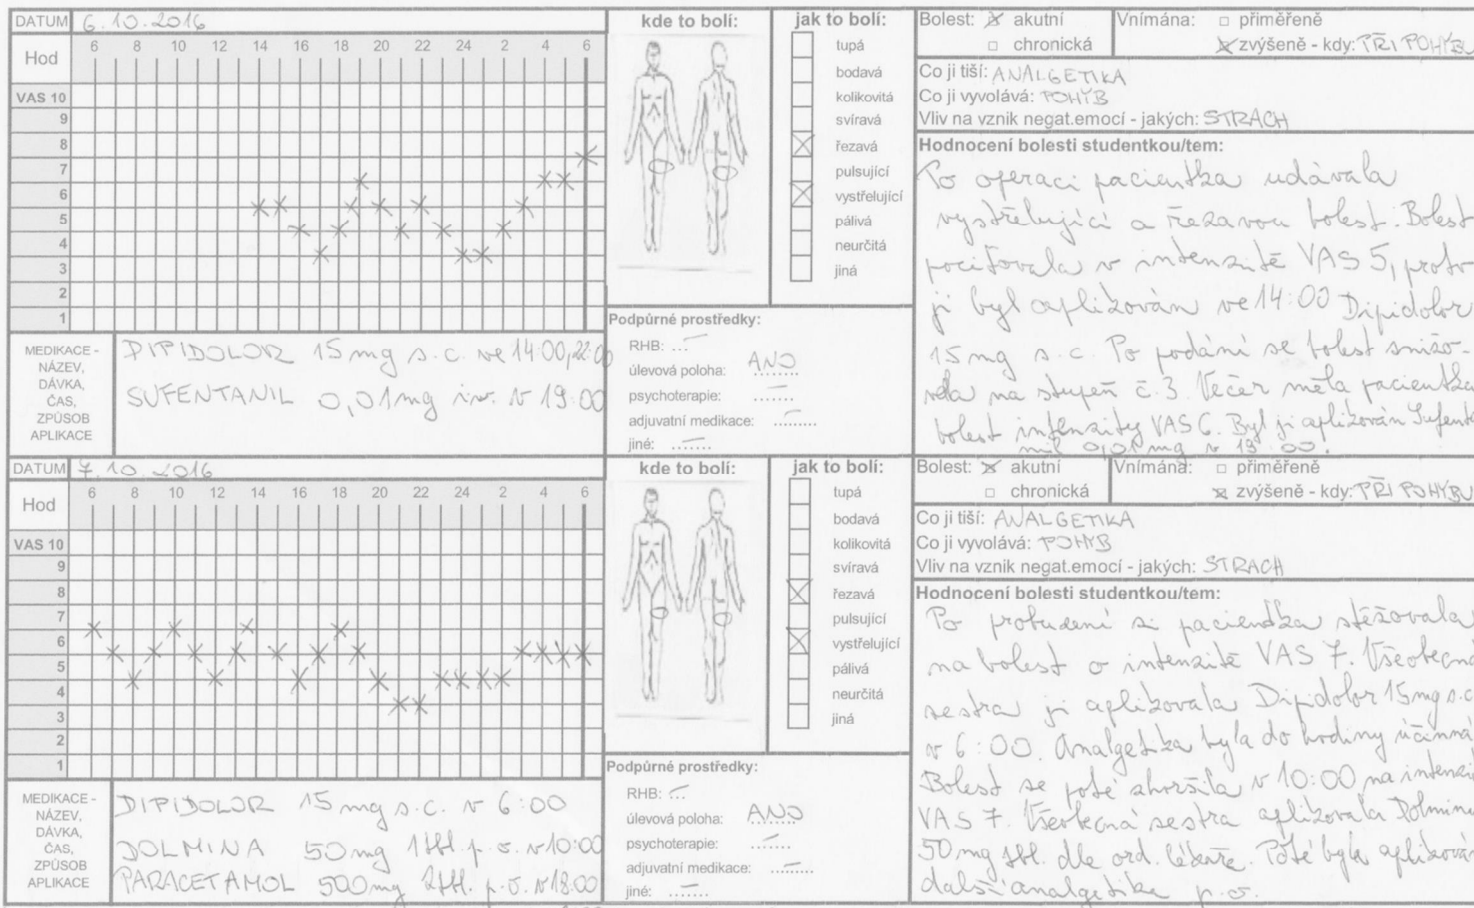 DATUM 6.10.2016
Hod 6 8 10 12 14 16 18 20 22 24 2 4 6
VAS 10
9
8
7
6
5
4
3
2
1
MEDIKACE - NÁZEV, DÁVKA, ČAS, ZPŮSOB APLIKACE
DIPIDOLOR 15mg s.c. ve 14:00, 22:00
SUFENTANIL 0,01mg i.v. v 19:00
kde to bolí:
jak to bolí:
tupá
bodavá
kolikovitá
svíravá
řezavá
pulsující
vystřelující
pálivá
neurčitá
jiná
Podpůrné prostředky:
RHB: ...
úlevová poloha: ANO
psychoterapie: ........
adjuvatní medikace: ........
jiné: ........
Bolest: akutní
chronická
Vnímána: přiměřeně
zvýšeně - kdy: PŘI POHYBU
Co ji tiší: ANALGETIKA
Co ji vyvolává: POHYB
Vliv na vznik negat.emocí - jakých: STRACH
Hodnocení bolesti studentkou/tem:
Po operaci pacientka udávala
vystřelující a řezavou bolest. Bolest
pociťovala v intenzitě VAS 5, proto
ji byl aplikován ve 14:00 Dipidolor
15mg s.c. Po podání se bolest snižo-
vala na stupeň č. 3. Večer měla pacientka
bolest intenzity VAS 6. Byl ji aplikován Sufenta
nil 0,01 mg v 19:00.
DATUM 7.10.2016
Hod 6 8 10 12 14 16 18 20 22 24 2 4 6
VAS 10
9
8
7
6
5
4
3
2
1
MEDIKACE - NÁZEV, DÁVKA, ČAS, ZPŮSOB APLIKACE
DIPIDOLOR 15mg s.c. v 6:00
DOLMINA 50mg 1tbl. p.o. v 10:00
PARACETAMOL 500mg 2tbl. p.o. v 18:00
kde to bolí:
jak to bolí:
tupá
bodavá
kolikovitá
svíravá
řezavá
pulsující
vystřelující
pálivá
neurčitá
jiná
Podpůrné prostředky:
RHB: ...
úlevová poloha: ANO
psychoterapie: ........
adjuvatní medikace: ........
jiné: ........
Bolest: akutní
chronická
Vnímána: přiměřeně
zvýšeně - kdy: PŘI POHYBU
Co ji tiší: ANALGETIKA
Co ji vyvolává: POHYB
Vliv na vznik negat.emocí - jakých: STRACH
Hodnocení bolesti studentkou/tem:
Po probuzení si pacientka stěžovala
na bolest o intenzitě VAS 7. Všeobecná
sestra ji aplikovala Dipidolor 15mg s.c
v 6:00. Analgetika byla do hodiny účinná
Bolest se poté zhoršila v 10:00 na intenzi
VAS 7. Všeobecná sestra aplikovala Dolminu
50mg tbl. dle ord. lékaře. Poté byla aplikován
další analgetika p.o.